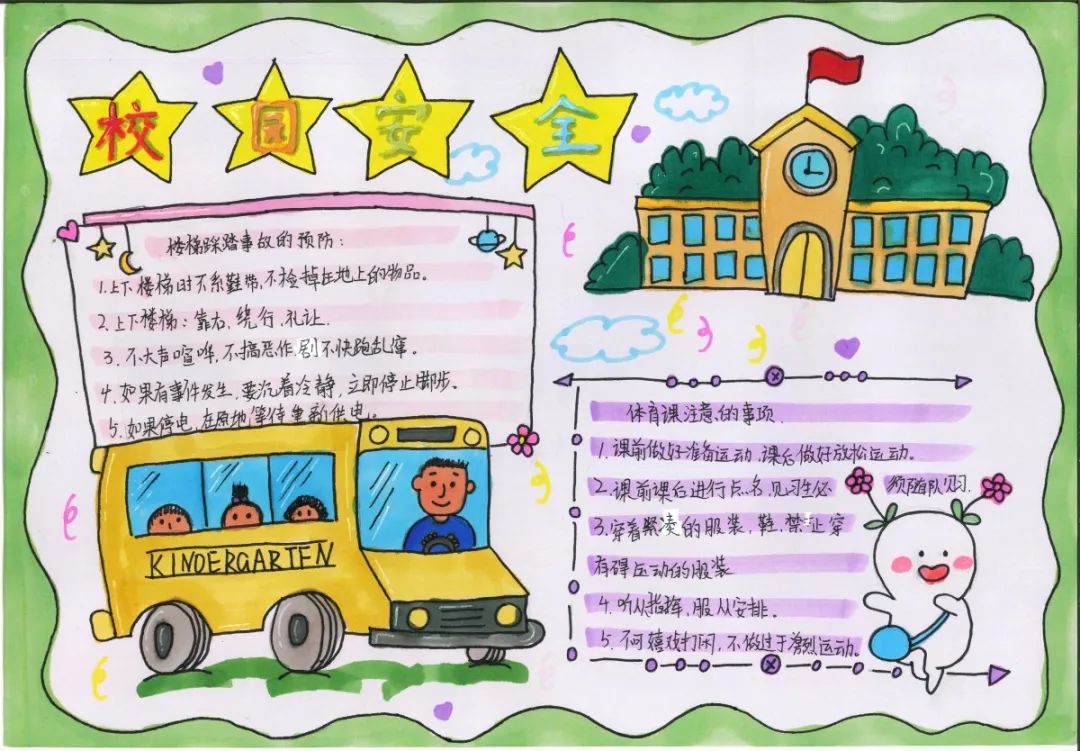 校园安全
楼梯踩踏事故的预防:
1.上下楼梯时不系鞋带,不捡掉在地上的物品。
2.上下楼梯:靠右、绕行、礼让.
3.不大声喧哗,不搞恶作剧不快跑乱窜。
4.如果有事件发生,要沉着冷静,立即停止脚步。
5.如果停电,在原地等待重新供电。
KINDERGARTEN
体育课注意的事项.
1.课前做好准备运动,课后做好放松运动。
2.课前课后进行点名,见习生必须随队见习.
3.穿着紧凑的服装,鞋,禁止穿
有碍运动的服装
4.听从指挥,服从安排。
5.不可嬉戏打闹,不做过于激烈运动。